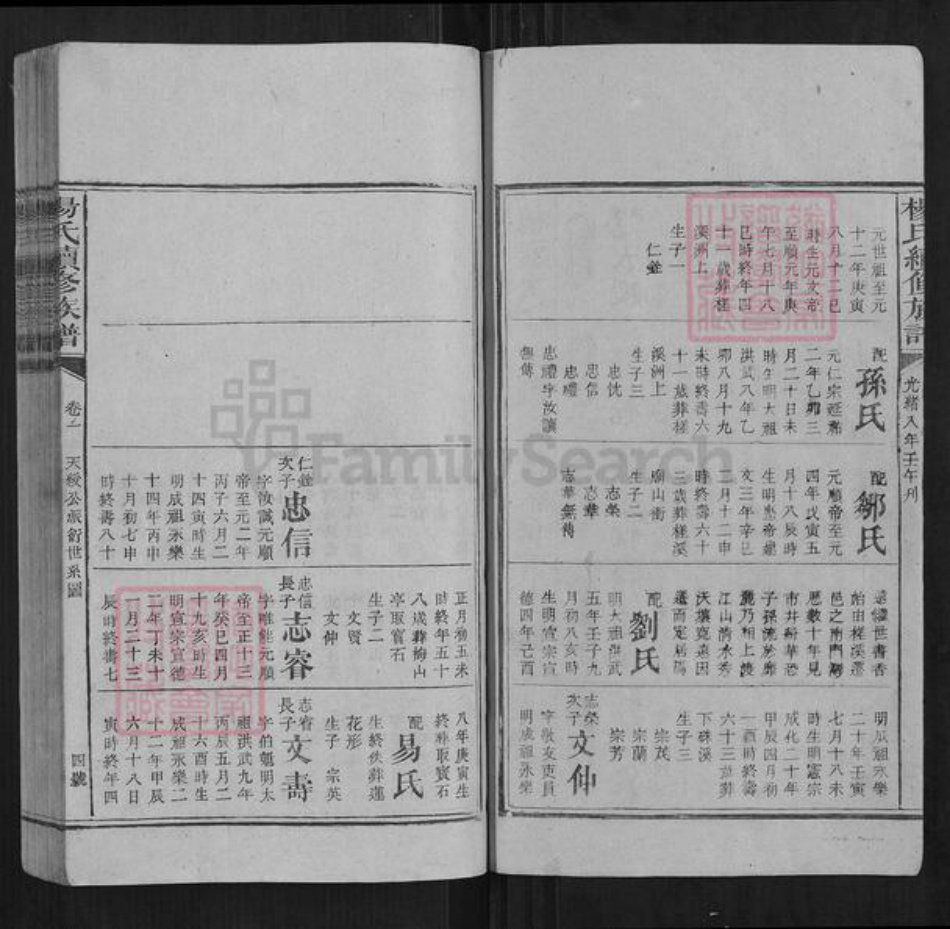 楊氏續修族譜
光緒八年壬午刋
元世祖至元
十二年庚寅
八月十二巳
時生元文帝
至順元年庚
午七月十八
巳時終年四
十一歲葬槎
溪洲上
生子一
仁銓
配
孫氏
元仁宗延祐
二年乙卯三
月二十日未
時生明大祖
洪武八年乙
卯八月十九
未時終壽六
十一歲葬槎
溪洲上
生子三
忠忱
忠信
忠禮
忠禮字汝讓
無傳
配
鄒氏
元順帝至元
四年戊寅五
月十八辰時
生明惠帝建
文三年辛巳
二月十二申
時終壽六十
三歲葬槎溪
廟山衝
生子二
志榮
志華
志華無傳
遠繼世書香
始由槎溪遷
邑之南門灣
歷數十年見
市井紛華恐
子孫流於靡
麗乃相上渡
江山清水秀
沃壤寬遠因
遷而定居焉
配
劉氏
明大祖洪武
五年壬子九
月初八亥時
生明宣宗宣
德四年己酉
明成祖永樂
二十年壬寅
七月十八未
時生明憲宗
成化二十年
甲辰四月初
一酉時終壽
六十三歲葬
下硃溪
生子三
宗茂
宗蘭
宗芳
志榮
次子
文仲
字敬友吏員
明成祖永樂
楊氏續修族譜
卷
天殺公派衍世系圖
四號
仁銓
次子
忠信
字汝誠元順
帝至元二年
丙子六月二
十四寅時生
明成祖永樂
十四年丙申
十月初七申
時終壽八十
正月初五未
時終年五十
八歲葬梅山
亭取寶石
生子二
文賢
文仲
忠信
長子
志睿
字唯能元順
帝至正十三
年癸巳四月
十九亥時生
明宣宗宣德
二年丁未十
一月二十三
辰時終壽七
八年庚寅生
終葬取寶石
配
易氏
生終佚葬蓮
花形
生子
宗英
志睿
長子
文壽
字伯魁明太
祖洪武九年
丙辰五月二
十六酉時生
成祖永樂二
十二年甲辰
六月十八日
寅時終年四
FamilySearch